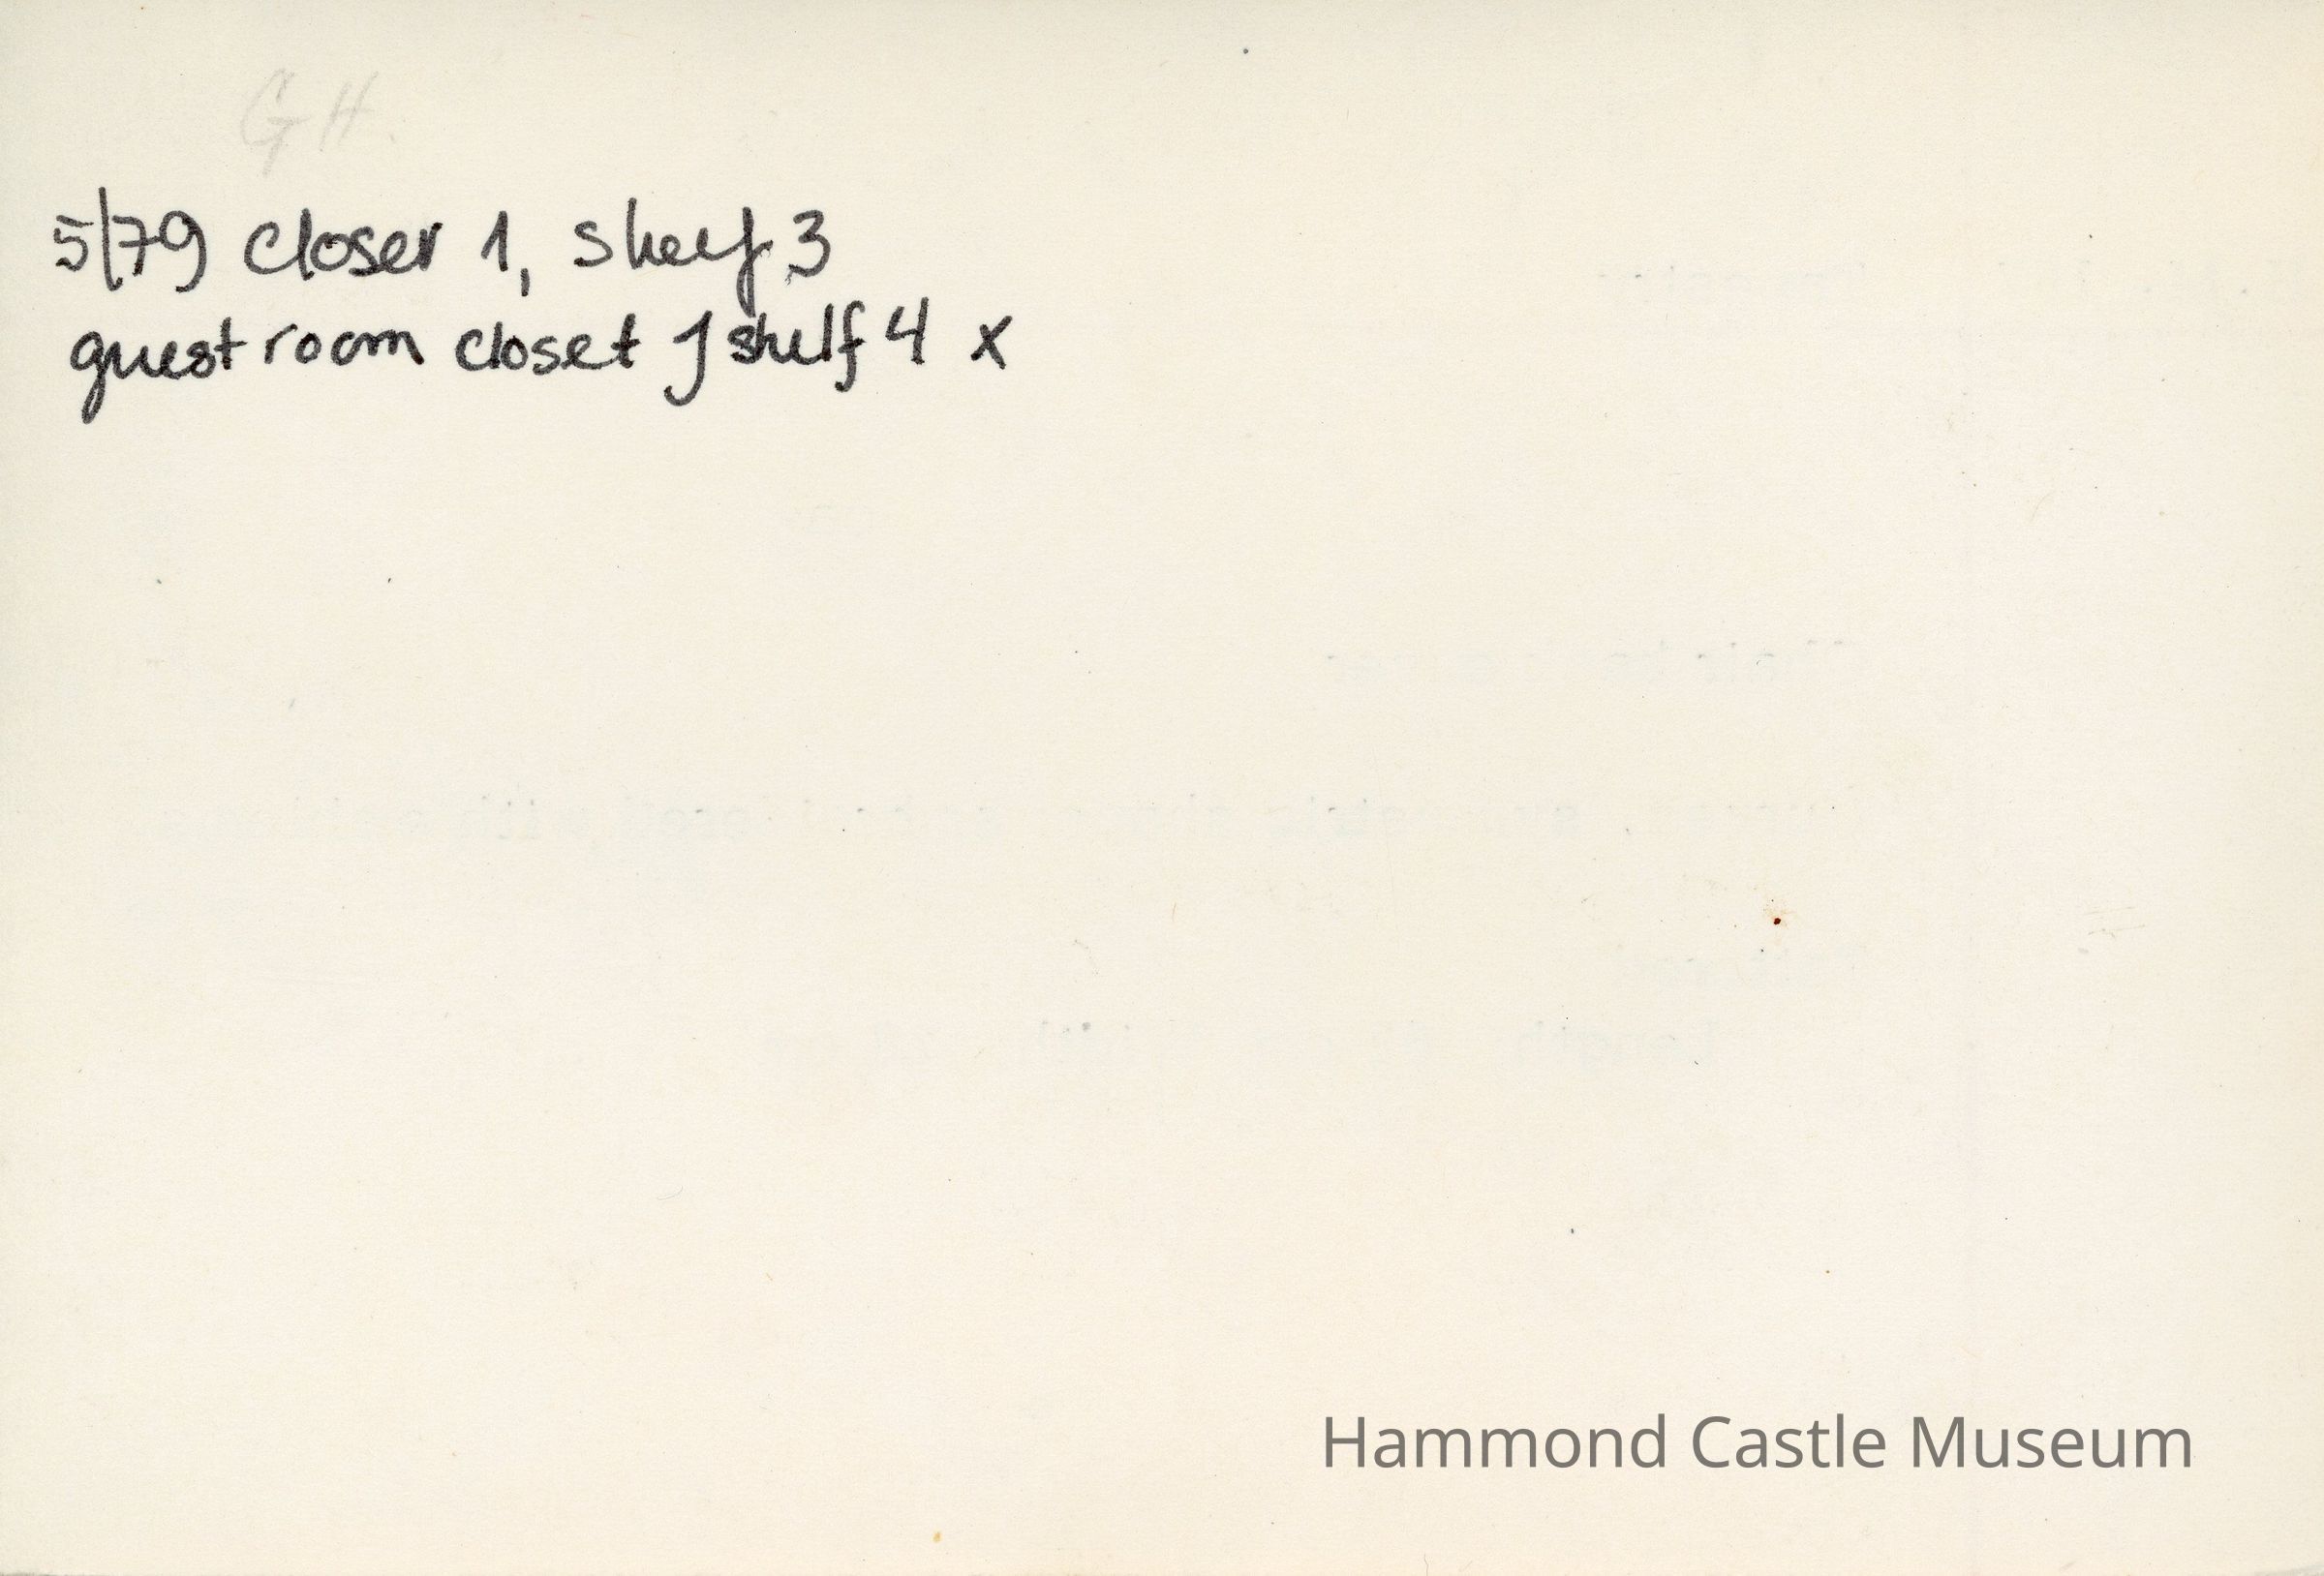 GH.
5/79 closer 1, shelf 3
guest room closet 1 shelf 4 x
Hammond Castle Museum